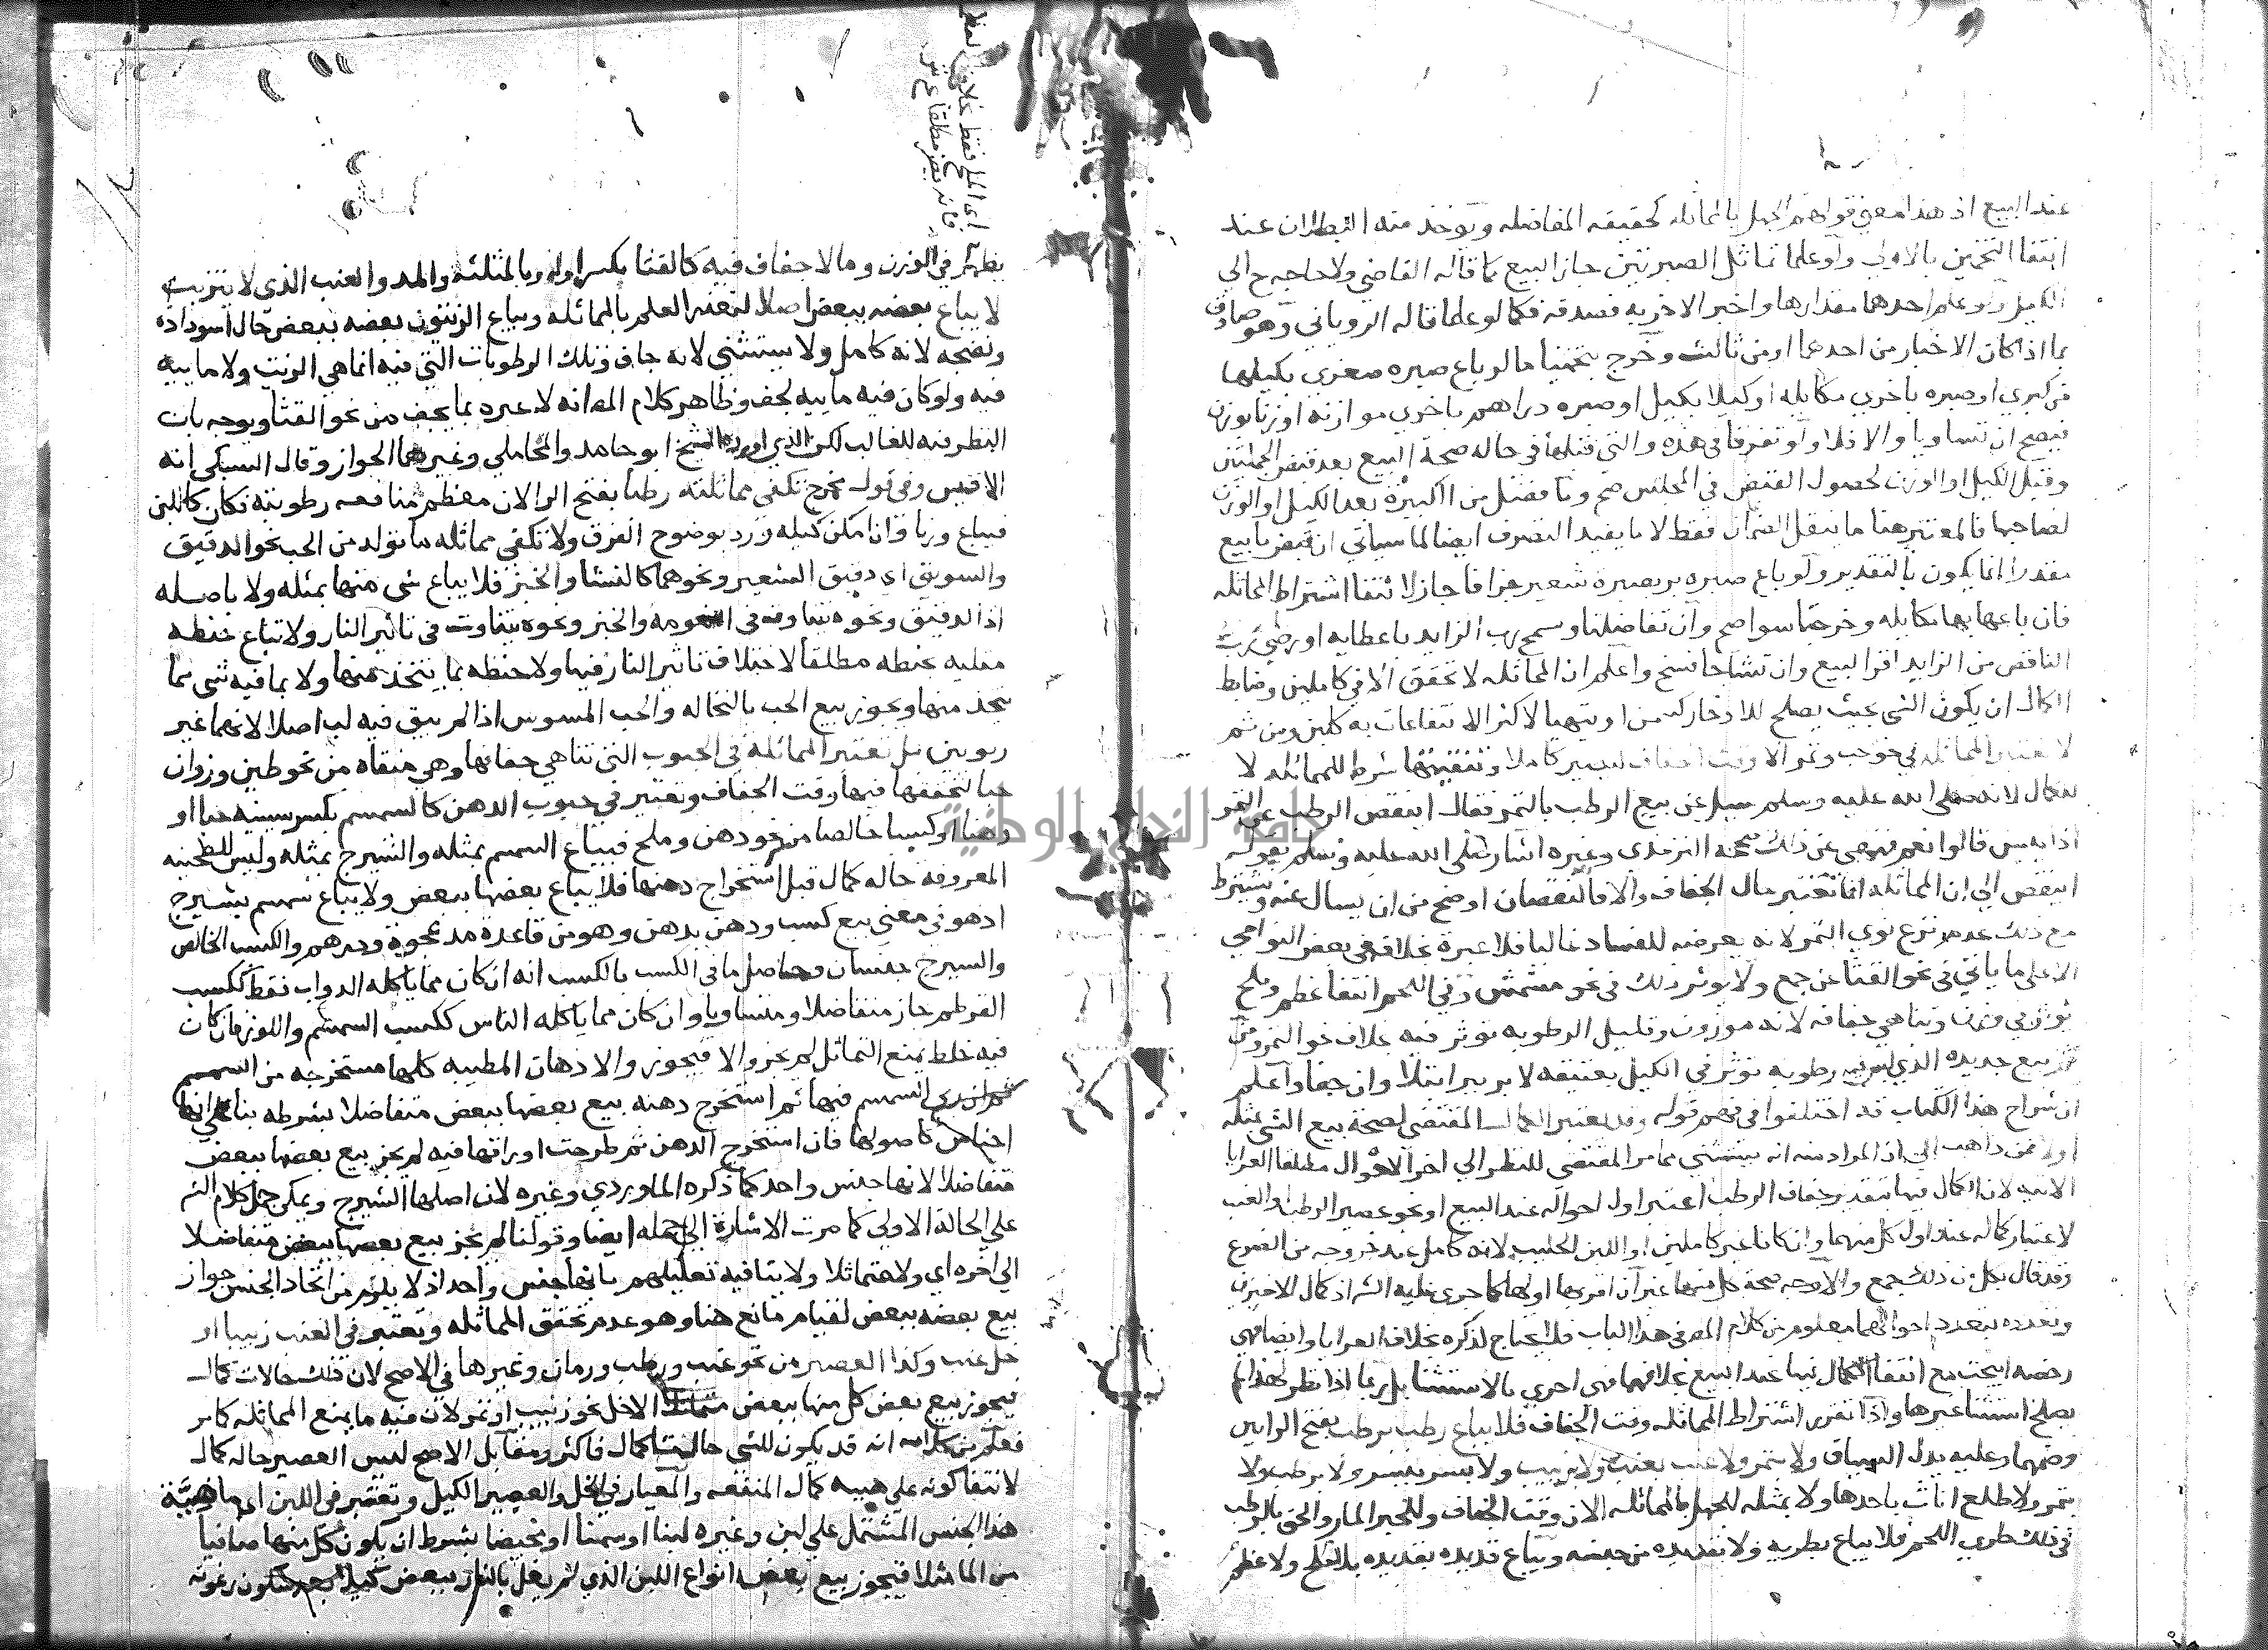 عند البيع اذ هذا معنى قولهم الجهل بالمماثله كحقيقه المفاضله ويوخذ منه البطلان عند
انتفا التخمين بالاولى ولو علما تماثل الصبرتين جاز البيع كما قاله القاضي ولا حاجه ح الي
الكيل ولو علم احدهما مقدارها واخبر الاخر به فصدقه فكما لو علما قاله الروياني وهو صادق
بما اذا كان الاخبار من احدهما او من ثالث وخرج بتخمينا ما لو باع صبره صغرى بكيلها
من كبرى او صبره باخرى مكايله او كيلا بكيل او صبره دراهم باخرى موازنه او وزنا بوزن
فيصح ان تساويا والا فلا ولو تفرقا في هذه والتي قبلها في حاله صحة البيع بعد قبض الجملتين
وقبل الكيل او الوزن لحصول القبض في المجلس صح وما فضل من الكبيرة بعد الكيل او الوزن
لصاحبها فالمعتبر هنا ما ينقل الضمان فقط لا ما يفيد التصرف ايضا لما سياتي ان قبض ما بيع
مقدرا انما يكون بالتقدير ولو باع صبره بر بصبرة شعير جزافا جاز لانتفا اشتراط المماثله
فان باعها بها مكايله وخرجتا سوا صح وان تفاضلتا وسمح رب الزايد باعطايه او رضي رب
الناقص من الزايد اقر البيع وان تشاحا فسخ واعلم ان المماثله لا تحقق الا في كاملين وضابط
الكمال ان يكون الشي بحيث يصلح للادخار كسمن او يتهيا لاكثر الانتفاعات به كلبن ومن ثم
لا تعتبر المماثله في نحو حب وتمر الا وقت الجفاف ليصير كاملا وتنقيتها شرط للمماثله لا
للكمال لانه صلى الله عليه وسلم سيل عن بيع الرطب بالتمر فقال اينقص الرطب
اذا يبس قالوا نعم فنهى عن ذلك صححه الترمذي وغيره اشار صلى الله عليه وسلم بقوله
اينقص الي ان المماثله انما تعتبر حال الجفاف والا فالنقصان اوضح من ان يسال عنه ويشترط
مع ذلك عدم نزع نوى التمر لانه يعرضه للفساد غالبا فلا عبرة بخلافه في بعض النواحي
الا على ما ياتي في نحو القثا عن جمع ولا يوثر ذلك في نحو مشمش وفي اللحم انتفا عظم وملح
يوثر في وزن وتناهي جفافه لانه موزون وقليل الرطوبه يوثر فيه بخلاف نحو التمر ومن
ثم بيع جديده الذي ليس فيه رطوبه توثر في الكيل بعتيقه لا بر ببر ابتلا وان جفا واعلم
ان شراح هذا الكتاب قد اختلفوا في فهم قوله وقد يعتبر الكمال المقتضي لصحة بيع الشي بمثله
اولا فمن ذاهب الى ان المراد منه انه يستثنى مما مر المقتضي للنظر الي اخر الاحوال مطلقا العرايا
الاتيه لان الكمال فيها بتقدير جفاف الرطب اعتبر اول احواله عند البيع او نحو عصير الرطب والعنب
لاعتبار كماله عند اول كل منهما وان كانا غير كاملين او اللبن الحليب لانه كامل عند خروجه من الضرع
وقد قال بكل من ذلك جمع والاوجه صحة كل منها غير ان اقربها اولها كما جرى عليه الش اذ كمال الاخيرين
وتعدده بتعدد احوالهما معلوم من كلام المص في هذا الباب فلا يحتاج لذكره بخلاف العرايا وايضا فهي
رخصه ابيحت مع انتفا الكمال فيها عند البيع بخلافهما فهي احرى بالاستثنا بل ربما اذا نظر لهذا لم
يصلح استثنا غيرها واذا تقرر اشتراط المماثله وقت الجفاف فلا يباع رطب برطب بفتح الراين
وضمهما وعليه يدل السياق ولا بتمر ولا عنب بعنب ولا بزبيب ولا بسر ببسر ولا برطب ولا
بتمر ولا طلع اناث باحدها ولا بمثله للجهل بالمماثله الان وقت الجفاف وللخبر المار والحق بالرطب
في ذلك طري اللحم فلا يباع بطريه ولا بقديده من جنسه ويباع قديده بقديده بلا ملح ولا عظم
اى الملح فقط خلاف العظم
فانه يضر مطلقا ع ش
يظهر في الوزن وما لا جفاف فيه كالقثا بكسر اوله وبالمثلثه والمد والعنب الذي لا يتزبب
لا يباع بعضه ببعض اصلا لتعذر العلم بالمماثله ويباع الزيتون بعضه ببعض حال اسوداده
ونضجه لانه كامل ولا يستثنى لانه جاف وتلك الرطوبات التي فيه انما هي الزيت ولا مائيه
فيه ولو كان فيه مائيه لجف وظاهر كلام المص انه لا عبره بما يجف من نحو القثا ويوجه بان
النظر فيه للغالب لكن الذي اورده الشيخ ابو حامد والمحاملي وغيرهما الجواز وقال السبكي انه
الاقيس وفي قول مخرج تكفي مماثلته رطبا بفتح الرا لان معظم منافعه رطوبته فكان كاللبن
فيباع وزنا وان امكن كيله ورد بوضوح الفرق ولا تكفي مماثله ما يتولد من الحب نحو الدقيق
والسويق اي دقيق الشعير ونحوهما كالنشا والخبز فلا يباع شي منها بمثله ولا باصله
اذ الدقيق ونحوه يتفاوت في النعومه والخبز ونحوه يتفاوت في تاثير النار ولا تباع حنطه
مقليه بحنطه مطلقا لاختلاف تاثير النار فيها ولا حنطه بما يتخذ منها ولا بما فيه شي مما
يتخذ منها ويجوز بيع الحب بالنخاله والحب المسوس اذا لم يبق فيه لب اصلا لانهما غير
ربويين بل تعتبر المماثلة في الحبوب التي تناهى جفافها وهي منقاه من نحو طين وزوان
حبا لتحققها فيها وقت الجفاف وتعتبر في حبوب الدهن كالسمسم بكسر سينيه حبا او
دهنا او كسبا خالصا من نحو دهن وملح فيباع السمسم بمثله والشيرج بمثله وليس للطحينه
المعروفه حاله كمال قبل استخراج دهنها فلا يباع بعضها ببعض ولا يباع سمسم بشيرج
اذ هو في معنى بيع كسب ودهن بدهن وهو من قاعدة مد عجوة ودرهم والكسب الخالص
والشيرج جنسان وحاصل ما في الكسب بالكسب انه ان كان مما ياكله الدواب فقط ككسب
القرطم جاز متفاضلا ومتساويا وان كان مما ياكله الناس ككسب السمسم واللوز فان كان
فيه خلط يمنع التماثل لم يجز والا فيجوز والادهان المطيبه كلها مستخرجه من السمسم
ثم ان ربي السمسم فيها ثم استخرج دهنه بيع بعضها ببعض متفاضلا بشرطه بنا على انها
اجناس كاصولها فان استخرج الدهن ثم طرحت اوراقها فيه لم يجز بيع بعضها ببعض
متفاضلا لانها جنس واحد كما ذكره الماوردي وغيره لان اصلها الشيرج ويمكن حمل كلام الش
على الحالة الاولى كما مرت الاشارة الى حمله ايضا وقولنا لم يجز بيع بعضها ببعض متفاضلا
الى اخره اي ولا متماثلا ولا ينافيه تعليلهم بانها جنس واحد اذ لا يلزم من اتحاد الجنس جواز
بيع بعضه ببعض لقيام مانع هنا وهو عدم تحقق المماثله وتعتبر في العنب زبيبا او
خل عنب وكذا العصير من نحو عنب ورطب ورمان وغيرها في الاصح لان تلك حالات كمال
فيجوز بيع بعض كل منها ببعض متماثلا الا خل نحو زبيب او تمر لان فيه ما يمنع المماثله كما مر
فعلم من كلامه انه قد يكون للشي حالتا كمال فاكثر ومقابل الاصح ليس العصير حاله كمال
لانتفا كونه على هيئه كمال المنفعه والمعيار في الخل والعصير الكيل وتعتبر في اللبن اي ماهية
هذا الجنس المشتمل على لبن وغيره لبنا او سمنا او مخيضا بشرط ان يكون كل منها صافيا
من الما مثلا فيجوز بيع بعض انواع اللبن الذي لم يغل بالنار ببعض كيلا بعد سكون رغوته
جامعة النجاح الوطنية